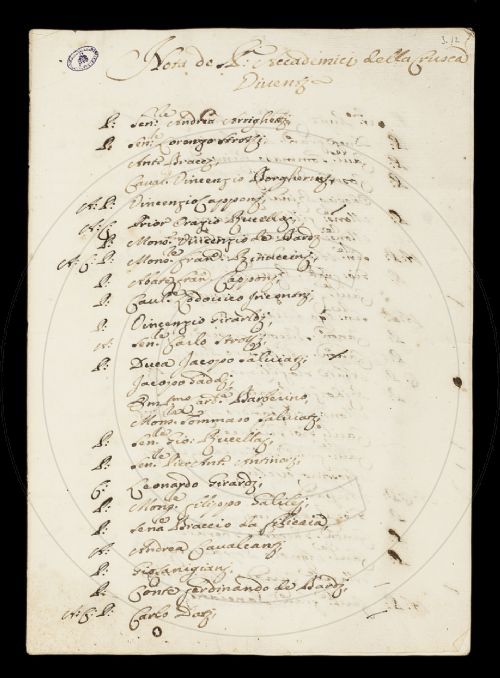 3. 12
Nota de SS.ri Accademici della Crusca
Viventi
P: Sen.re Andrea Arrighetti,
P: Sen.re Lorenzo Strozzi,
Ant.o Bracci,
Caval. Vincenzio Borgherini,
A: P: Vincenzio Capponi,
A: C: Prior Orazio Rucellai,
P: Mons.r Vincenzio de Bardi
A: C: P: Mons.re Bonaccini,
P: Abate Fran. Capponi,
P: Caval.re Lodovico
P: Vincenzio Girardi,
A: Sen.re Carlo Strozzi,
P: Duca Jacopo Salviati,
Jacopo Gaddi,
Em.mo Card. Barberino,
Mons.re Tommaso Salviati,
P: Sen.re Gio: Rucellai,
P: Sen.re Pier Ant. Antinori,
G: Leonardo Girardi,
P: Mons.re Filippo Galilei,
P: Sena.re Braccio da Filicaia,
A: Andrea Cavalcanti,
P: Gio:
P: Conte Ferdinando de Bardi,
A: C: P: Carlo Dati,